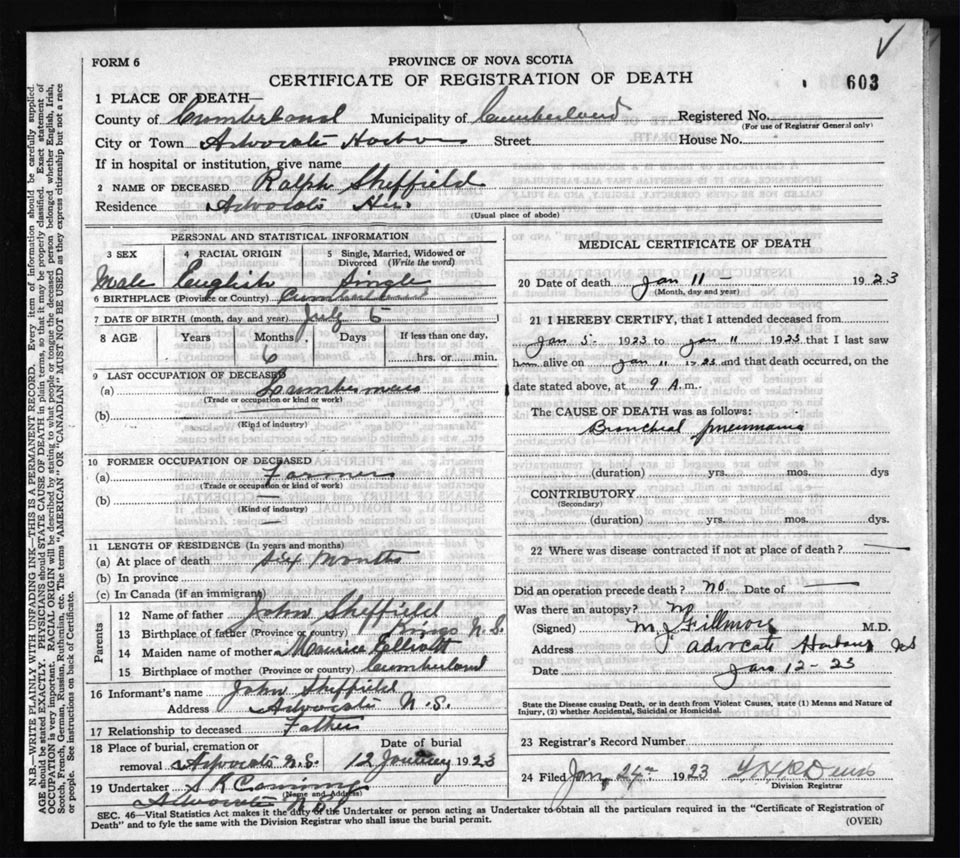 FORM 6
PROVINCE OF NOVA SCOTIA
CERTIFICATE OF REGISTRATION OF DEATH
603
1 PLACE OF DEATH—
County of Cumberland Municipality of Cumberland Registered No.
(For use of Registrar General only)
City or Town Advocate Harbour Street House No.
If in hospital or institution, give name
2 NAME OF DECEASED Ralph Sheffield
Residence Advocate Hr.
(Usual place of abode)
PERSONAL AND STATISTICAL INFORMATION
3 SEX 4 RACIAL ORIGIN 5 Single, Married, Widowed or
Divorced (Write the word)
Male English Single
6 BIRTHPLACE (Province or Country) Cumberland
7 DATE OF BIRTH (month, day and year) July 5 1
8 AGE Years Months Days If less than one day,
6 hrs. or min.
9 LAST OCCUPATION OF DECEASED
(a)
(Trade or occupation or kind or work)
(b)
(Kind of industry)
10 FORMER OCCUPATION OF DECEASED
(a) Farmer
(Trade or occupation or kind of work)
(b) —
(Kind of industry)
11 LENGTH OF RESIDENCE (In years and months)
(a) At place of death Six Months
(b) In province
(c) In Canada (if an immigrant)
Parents
12 Name of father John Sheffield
13 Birthplace of father (Province or country) Kings N.S.
14 Maiden name of mother
15 Birthplace of mother (Province or country) Cumberland
16 Informant's name John Sheffield
Address Advocate N.S.
17 Relationship to deceased Father
18 Place of burial, cremation or Date of burial
removal Advocate N.S. 12 January 1923
19 Undertaker
(Name and Address)
Advocate
MEDICAL CERTIFICATE OF DEATH
20 Date of death Jan 11 — 1923
(Month, day and year)
21 I HEREBY CERTIFY, that I attended deceased from
Jan 5. 1923 to Jan 11 1923 that I last saw
him alive on Jan 11 1923 and that death occurred, on the
date stated above, at 9 A.m.
The CAUSE OF DEATH was as follows:
Bronchial pneumonia
(duration) yrs. mos. dys
CONTRIBUTORY
(Secondary)
(duration) yrs. mos. dys.
22 Where was disease contracted if not at place of death? —
Did an operation precede death? no Date of —
Was there an autopsy?
(Signed) M. J. Fillmore M.D.
Address Advocate Harbour NS
Date Jan 12-23
State the Disease causing Death, or in death from Violent Causes, state (1) Means and Nature of
Injury, (2) whether Accidental, Suicidal or Homicidal.
23 Registrar's Record Number
24 Filed Jan, 24th 1923
Division Registrar
SEC. 46—Vital Statistics Act makes it the duty of the Undertaker or person acting as Undertaker to obtain all the particulars required in the "Certificate of Registration of
Death" and to fyle the same with the Division Registrar who shall issue the burial permit. (OVER)
N.B.—WRITE PLAINLY WITH UNFADING INK—THIS IS A PERMANENT RECORD. Every item of information should be carefully supplied.
AGE should be stated EXACTLY. PHYSICIANS should STATE CAUSE OF DEATH in plain terms, so that it may be properly classified. Exact statement of
OCCUPATION is very important. RACIAL ORIGIN will be described by stating to what people or tongue the deceased person belonged whether English, Irish,
Scotch, French, German, Russian, Ruthenian, etc. The terms "AMERICAN" OR "CANADIAN" MUST NOT BE USED as they express citizenship but not a race
or people. See instructions on back of Certificate.